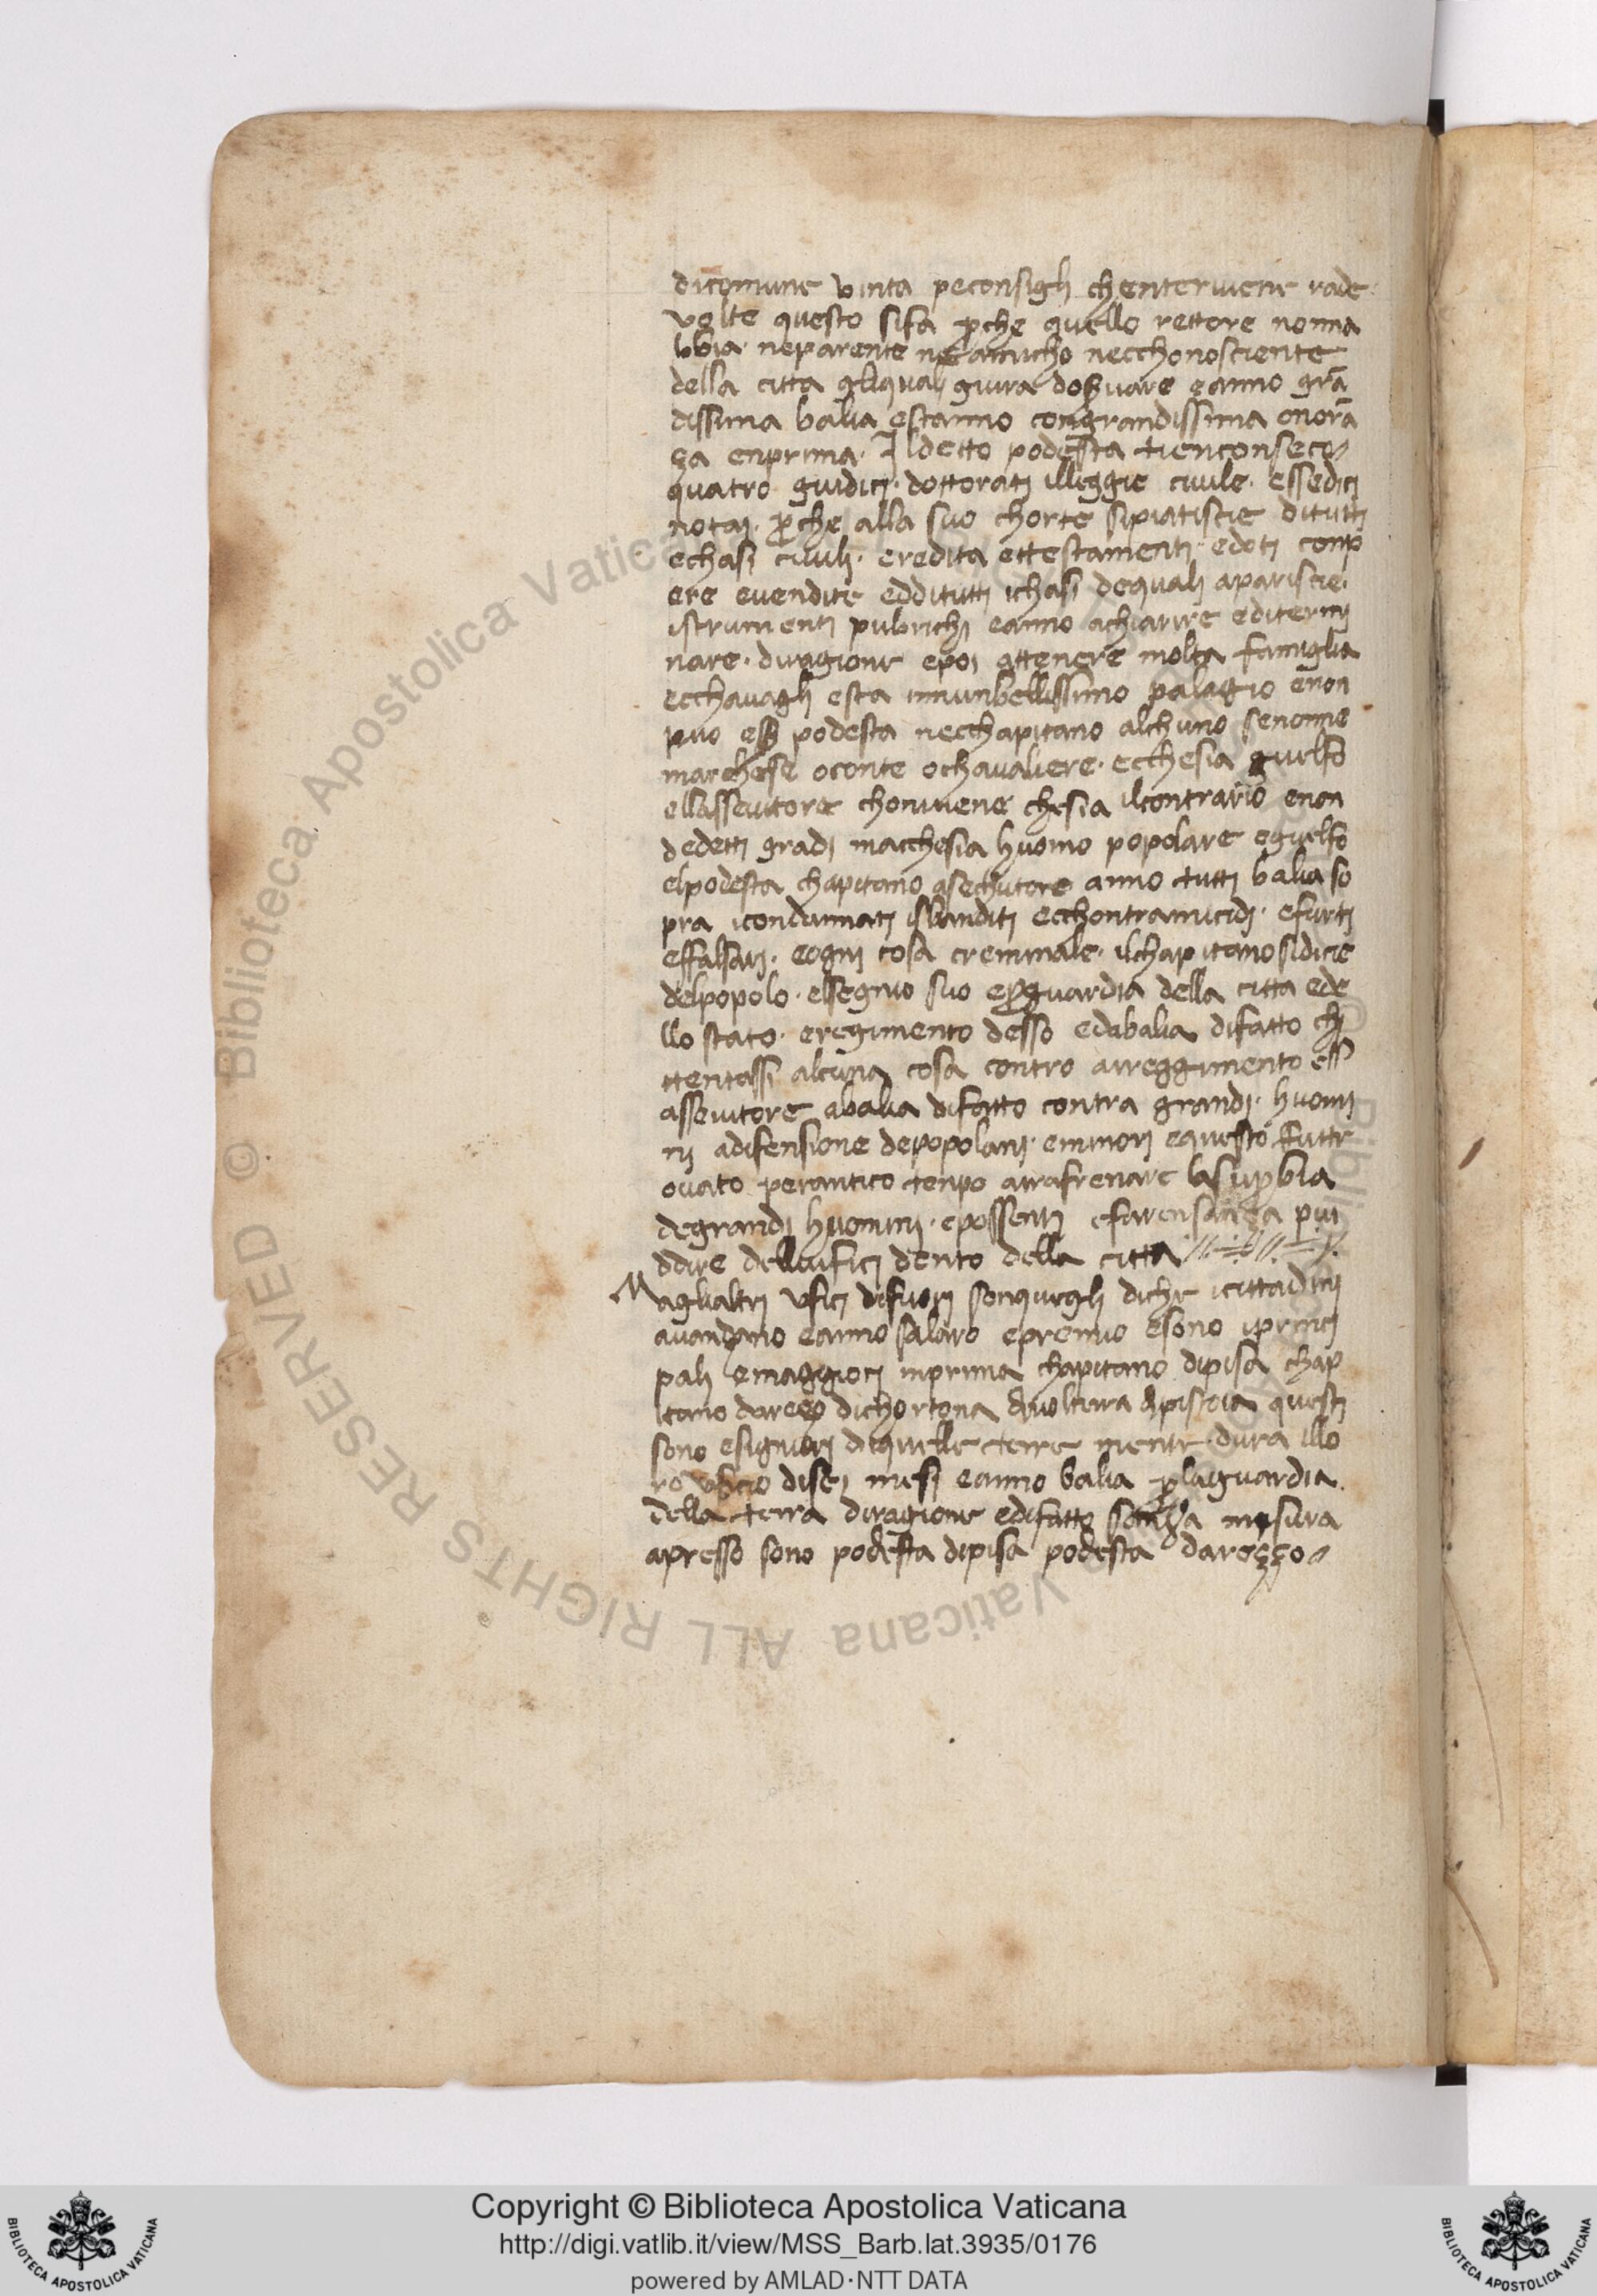 dicomune vinta peconsigli chenterviene rade
volte questo sifa p̱che quello rettore nonna
bbia neparente ne amicho necchonosciente
della citta
dissima balia estanno congrandissima onorā
ça enprima. Ildetto podesta tienconseco
quatro guidici. dottorati illeggie civile. essedici
notai. p̱che alla suo chorte sipiatiscie ditutti
echasi civili. eredita ettestamenti. edoti conp
ere evendite edditutti ichasi dequali apariscie.
istrumenti pubrichi eanno achiarire editermi
nare. diragione epoi attenere molta famiglia
ecchavagli esta innunbellissimo palagio enon
puo podesta necchapitano alchuno senonne
marchese oconte ochavaliere. ecchesia guelfo
ellassecutore chonviene chesia ilcontrario enon
dedetti gradi macchesia huomo popolare eguelfo
elpodesta chapitano asechutore anno tutti balia so
pra icondannati isbanditi ecchontramicidi. efurti
effalsari. eogni cosa creminale. ilchapitano sidicie
delpopolo. elsegnio suo ep̱guardia della citta ede
llo stato. eregimento desso edabalia difatto chi
ttentassi alcuna cosa contro arreggimento ell
assecutore abalia difatto contra grandi. huomi
ni adifensione depopolani. eminori equesto futtr
ovato perantico tenpo arrafrenare lasup̱bia
degrandi huomini. epossenti efarensança piu
ddire delliufici dento della citta
Magliatri ufici difuori sonquegli diche icittadini
avandano eanno salaro epremio esono iprinci
pali emaggiori inprima chapitano dipisa chap
itano dareço dichortona divolterra dipistoia questi
sono esigniori diquelle terre mentr dura illo
ro uficio disei mesi eanno balia p̱laguardia
della terra diragione edifatto sança misura
apresso sono podesta dipisa podesta dareçço
Copyright © Biblioteca Apostolica Vaticana
http://digi.vatlib.it/view/MSS_Barb.lat.3935/0176
powered by AMLAD·NTT DATA